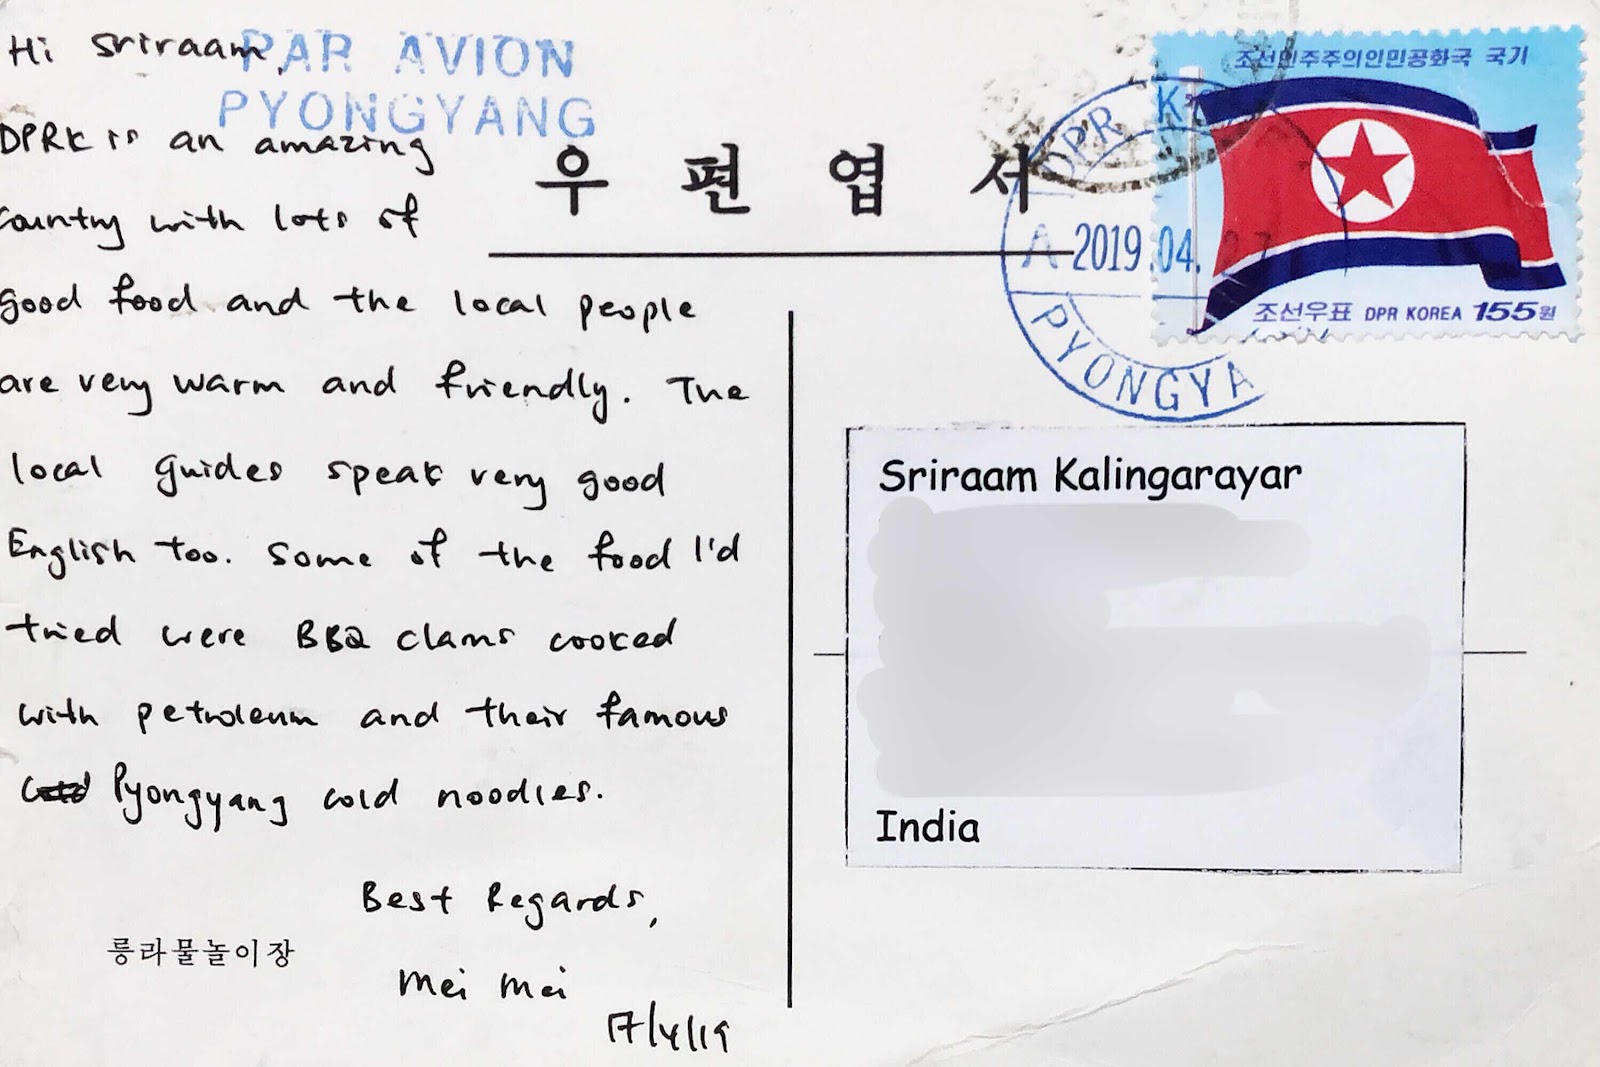 Hi Sriraam,
PAR AVION
PYONGYANG
DPRK is an amazing
country with lots of
good food and the local people
are very warm and friendly. The
local guides speak very good
English too. Some of the food I'd
tried were BBQ clams cooked
with petroleum and their famous
Pyongyang cold noodles.
Best Regards,
Mei Mei
17/4/19
릉라물놀이장
우편엽서
조선민주주의인민공화국 국기
조선우표 DPR KOREA 155원
DPR K
A 2019.04.27
PYONGYA
Sriraam Kalingarayar
India